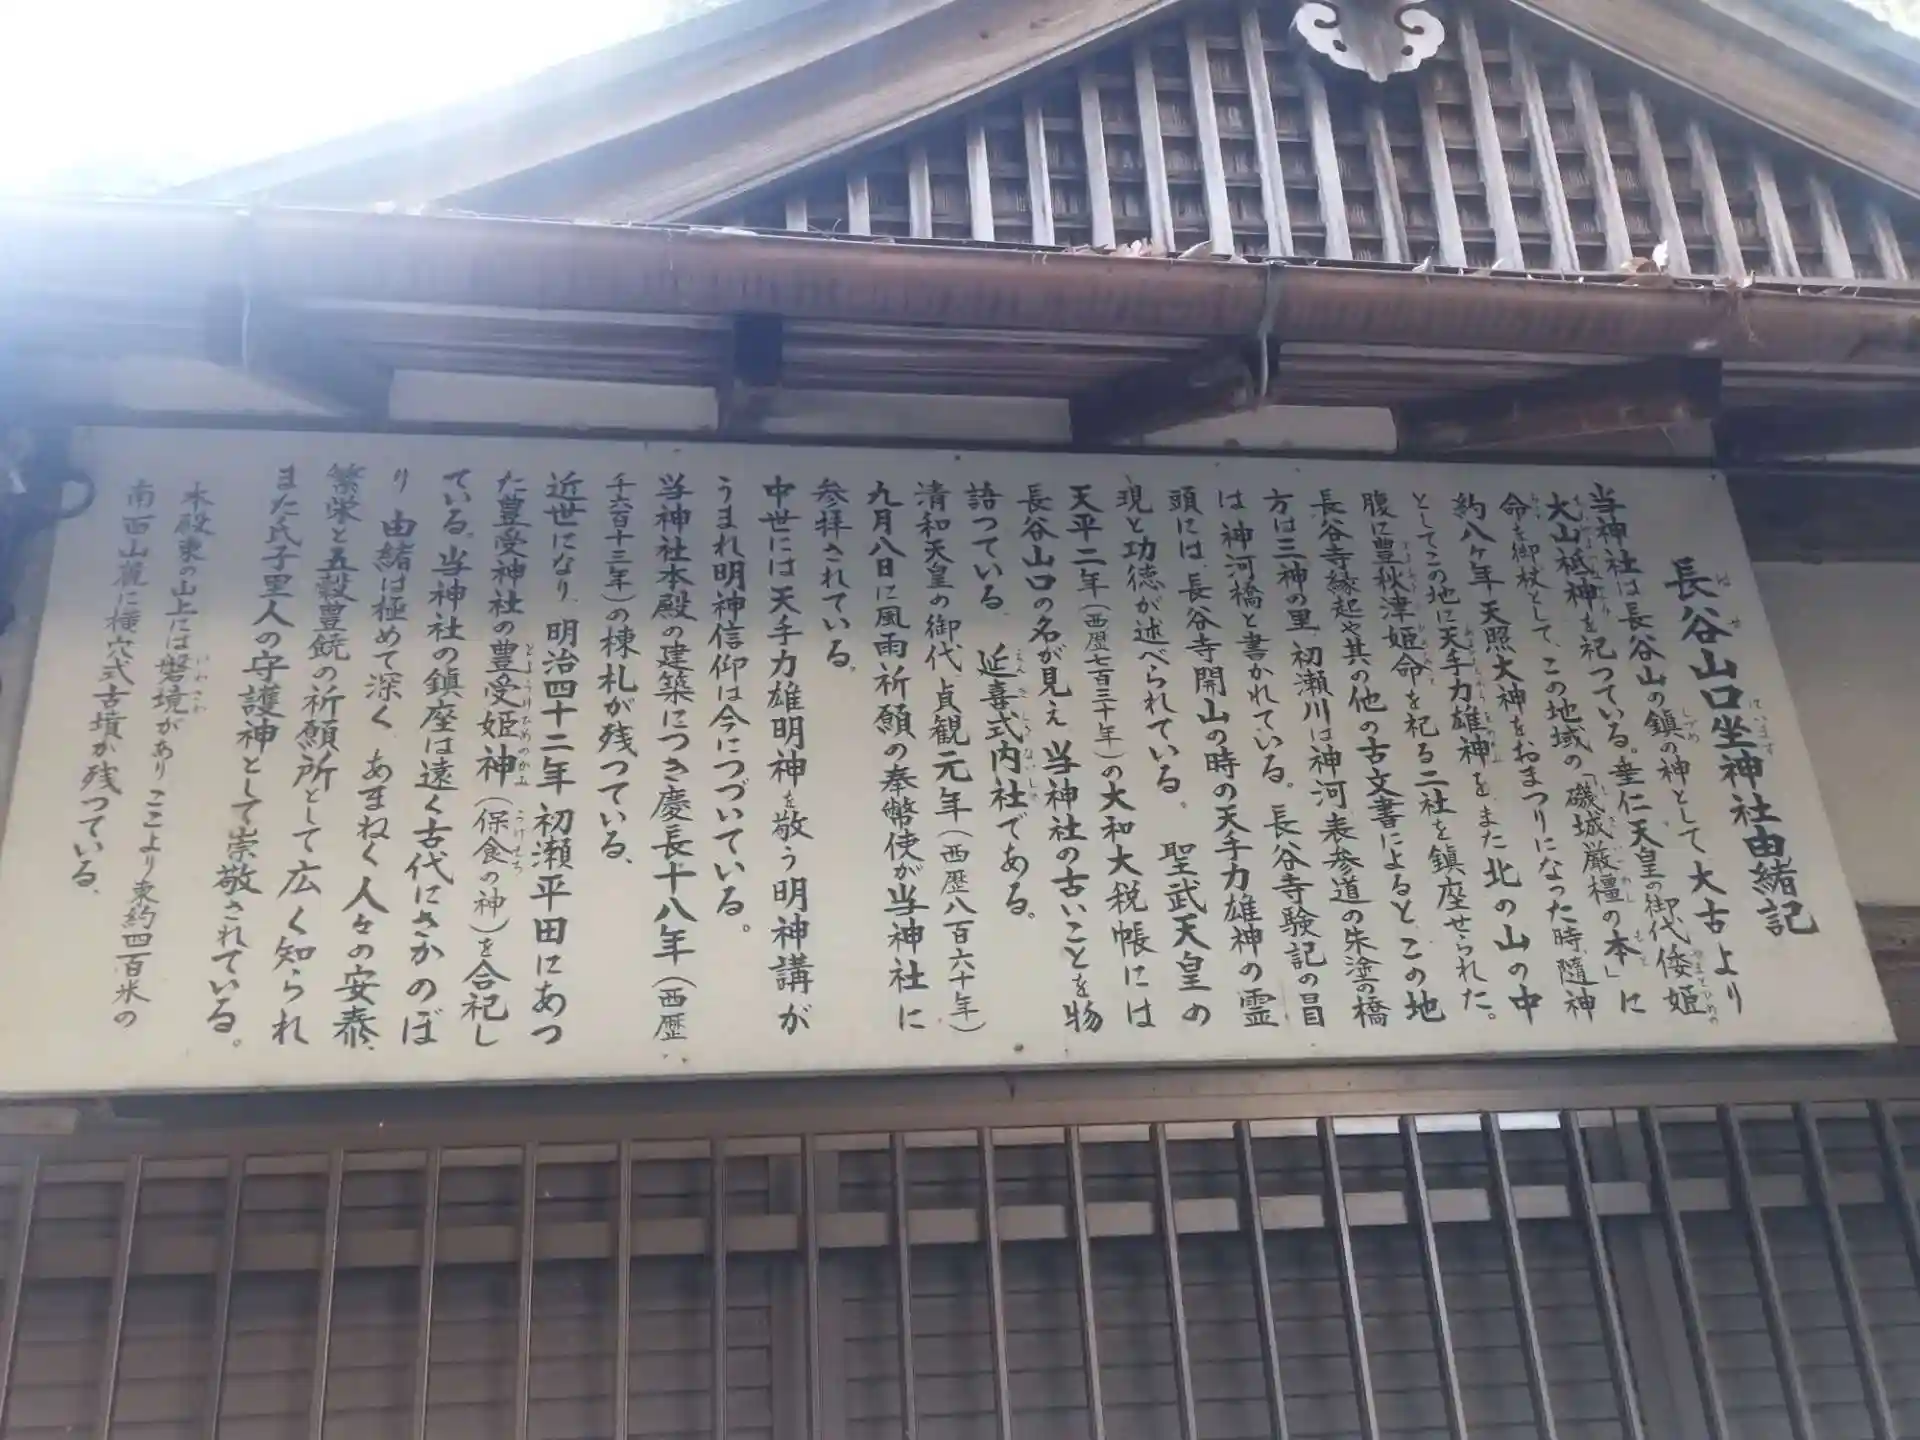 長谷山口坐神社由緒記
当神社は長谷山の鎮の神として大古より
大山祇神を祀つている。垂仁天皇の御代倭姫
命を御杖として、この地域の「磯城厳橿の本」に
約八ヶ年天照大神をおまつりになった時、随神
としてこの地に天手力雄神を、また北の山の中
腹に豊秋津姫命を祀る二社を鎮座せられた。
長谷寺縁起や其の他の古文書によると、この地
方は三神の里、初瀬川は神河、表参道の朱塗の橋
は神河橋と書かれている。長谷寺験記の冒
頭には、長谷寺開山の時の天手力雄神の霊
現と功徳が述べられている。聖武天皇の
天平二年(西歴七百三十年)の大和大税帳には
長谷山口の名が見え、当神社の古いことを物
語つている。延喜式内社である。
清和天皇の御代、貞観元年(西歴八百六十年)
九月八日に風雨祈願の奉幣使が当神社に
参拝されている。
中世には天手力雄明神を敬う明神講が
うまれ明神信仰は今につづいている。
当神社本殿の建築につき慶長十八年(西歴
千六百十三年)の棟札が残つている、
近世になり、明治四十二年初瀬平田にあつ
た豊受神社の豊受姫神(保食の神)を合祀し
ている。当神社の鎮座は遠く古代にさかのぼ
り由緒は極めて深く、あまねく人々の安泰、
繁栄と五穀豊饒の祈願所として広く知られ
また氏子里人の守護神として崇敬されている。
本殿東の山上には磐境がありここより東約四百米の
南西山麓に横穴式古墳が残つている、